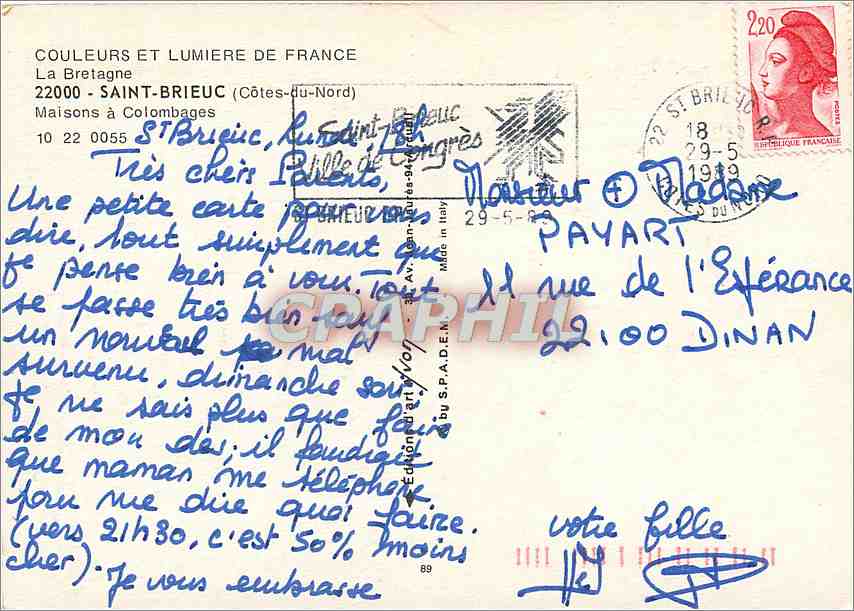 COULEURS ET LUMIERE DE FRANCE
La Bretagne
22000 - SAINT-BRIEUC (Côtes-du-Nord)
Maisons à Colombages
10 22 0055
St Brieuc, lundi, 8h
Très chers Parents,
Une petite carte pour vous
dire, tout simplement que
je pense bien à vous. Tout
se passe très bien sauf
un nouveau mal
survenu, dimanche soir
je ne sais plus que faire
de mon dos; il faudrait
que maman me téléphone
pour me dire quoi faire.
(vers 21h30, c'est 50% moins
cher). Je vous embrasse
votre fille
Monsieur + Madame
PAYART
11 rue de l'Espérance
22100 DINAN
Saint-Brieuc
Ville de Congrès
ST BRIEUC
29-5-89
22 ST BRIEUC R.P.
18
29-5
1989
COTES DU NORD
2,20
POSTES
REPUBLIQUE FRANÇAISE
Editions d'art Yvon
Av. Jean-Jaurès-94-Arcueil
Made in Italy
by S.P.A.D.E.M.
89
CPAPHIL